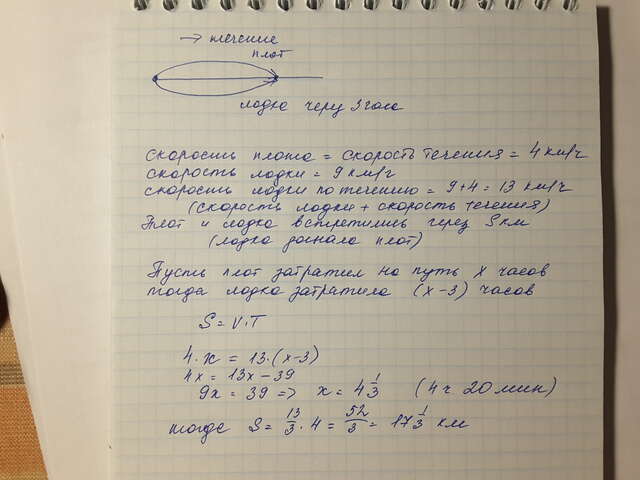 → течение
плот
лодка через 3 часа
скорость плота = скорость течения = 4 км/ч
скорость лодки = 9 км/ч
скорость лодки по течению = 9+4 = 13 км/ч
(скорость лодки + скорость течения)
Плот и лодка встретились через S км
(лодка догнала плот)
Пусть плот затратил на путь x часов
тогда лодка затратила (x-3) часов
S = V·T
4·x = 13(x-3)
4x = 13x-39
9x = 39 => x = 4 1/3 (4ч 20 мин)
тогда S = 13/3 · 4 = 52/3 = 17 1/3 км